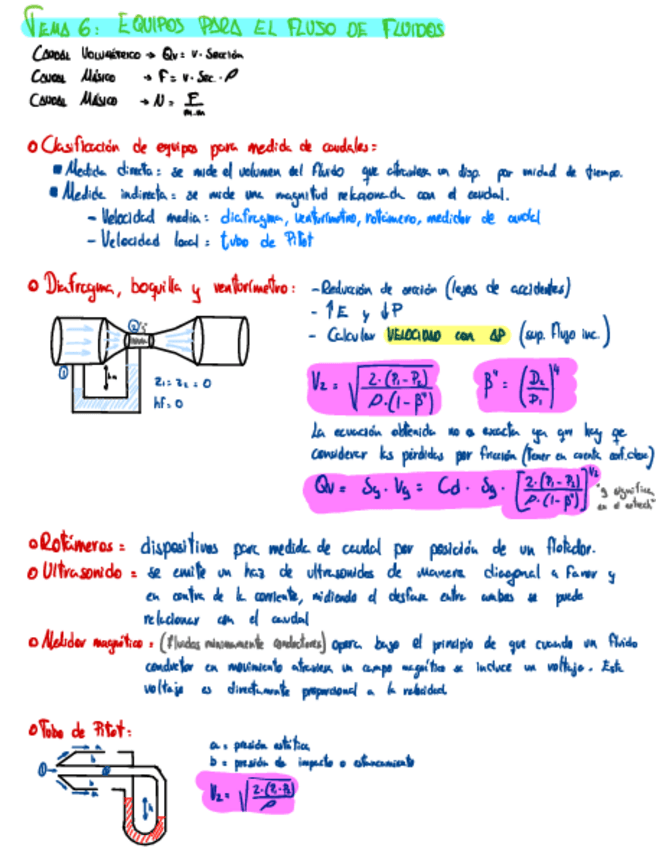 TEMA 6: EQUIPOS PARA EL FLUJO DE FLUIDOS
CAUDAL VOLUMÉTRICO → Qv = v · Sección
CAUDAL MÁSICO → F = v · Sec. · ρ
CAUDAL MÁSICO → N = F/m.m
Clasificación de equipos para medida de caudales:
Medida directa: se mide el volumen del fluido que atraviesa un disp. por unidad de tiempo.
Medida indirecta: se mide una magnitud relacionada con el caudal.
- Velocidad media: diafragma, venturímetro, rotámero, medidor de caudal
- Velocidad local: tubo de Pitot
Diafragma, boquilla y venturímetro:
- Reducción de sección (lejos de accidentes)
- ↑E y ↓P
- Calcular VELOCIDAD con ΔP (sup. Flujo inc.)
① ②
z₁ = z₂ = 0
hf = 0
V₂ = √(2·(P₁-P₂) / ρ·(1-β⁴))
β⁴ = (D₂/D₁)⁴
La ecuación obtenida no es exacta ya que hay qe
considerar las pérdidas por fricción (Tener en cuenta
Qv = Sg · Vg = Cd · Sg · [2·(P₁-P₂) / ρ·(1-β⁴)]^1/2
"g significa
en el
Rotámeros = dispositivos para medida de caudal por posición de un flotador.
Ultrasonido = se emite un haz de ultrasonidos de manera diagonal a favor y
en contra de la corriente, midiendo el desfase entre ambos se puede
relacionar con el caudal
Medidor magnético = (Fluidos mínimamente conductores) opera bajo el principio de que cuando un fluido
conductor en movimiento atraviesa un campo magnético se induce un voltaje. Este
voltaje es directamente proporcional a la velocidad
Tubo de Pitot:
a = presión estática
b = presión de impacto o estancamiento
V₂ = √(2·(P₁-P₂) / ρ)
① b a
h